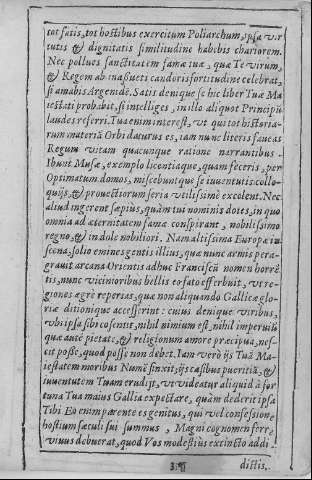 tot satis, tot hostibus exercitum Poliarchum, ipsa vir-
tutis & dignitatis similitudine habebis chariorem.
Nec pollues sanctitatem famæ tuæ, quæ Te virum,
& Regem ab inassueti candoris fortitudine celebrat,
si amabis Argenidē. Satis denique se hic liber Tuæ Ma
iestati probabit, si intelliges, in illo aliquot Principū
laudes referri. Tua enim interest, vt qui tot historia-
rum materiā Orbi daturus es, iam nunc literis faueas
Regum vitam quacunque ratione narrantibus.
Ibunt Musæ, exemplo licentiaque, quam feceris, per
Optimatum domos, miscebuntque se iuuentutis collo-
quijs, & prouectiorum seria vtilissimè excolent. Nec
aliud ingerent sæpius, quàm tui nominis dotes, in quo
omnia ad æternitatem famæ conspirant, nobilissimo
regno, & indole nobiliori. Nam altissima Europæ in
scena, solio emines gentis illius, quæ nunc armis pera-
grauit arcana Orientis adhuc Franciscū nomen horrē
tis, nunc vicinioribus bellis eo fato efferbuit, vt re-
giones agrè repertas, quæ non aliquando Gallicæ glo-
riæ ditionique accesserint: cuius denique viribus,
vbi ipsa sibi cosensit, nihil nimium est, nihil imperuiū
quæ autē pietate, & religionum amore præcipua, nes-
cit posse, quod posse non debet. Iam verò ijs Tuā Ma
iestatem moribus Numē finxit, ijs casibus pueritiā, &
iuuentutem Tuam erudijt, vt videatur aliquid à for
tuna Tua maius Gallia expectare, quàm dederit ipsa
Tibi Eo enim parente es genitus, qui vel confessione
hostium sæculi sui summus, Magni cognomen ferre
viuus debuerat, quod Vos modestiùs extincto addi-
3 ¶
distis.